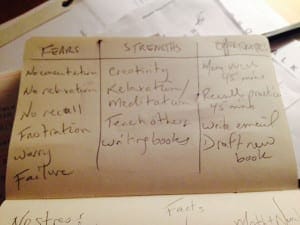 FEARS
No concentration
No retention
No recall
Frustration
Worry
Failure
STRENGTHS
Creativity
Relaxation/
Meditation
Teach others
writing books
45 mins
Recall practice
45 mins
write email
Draft new
book
No stress!
Facts